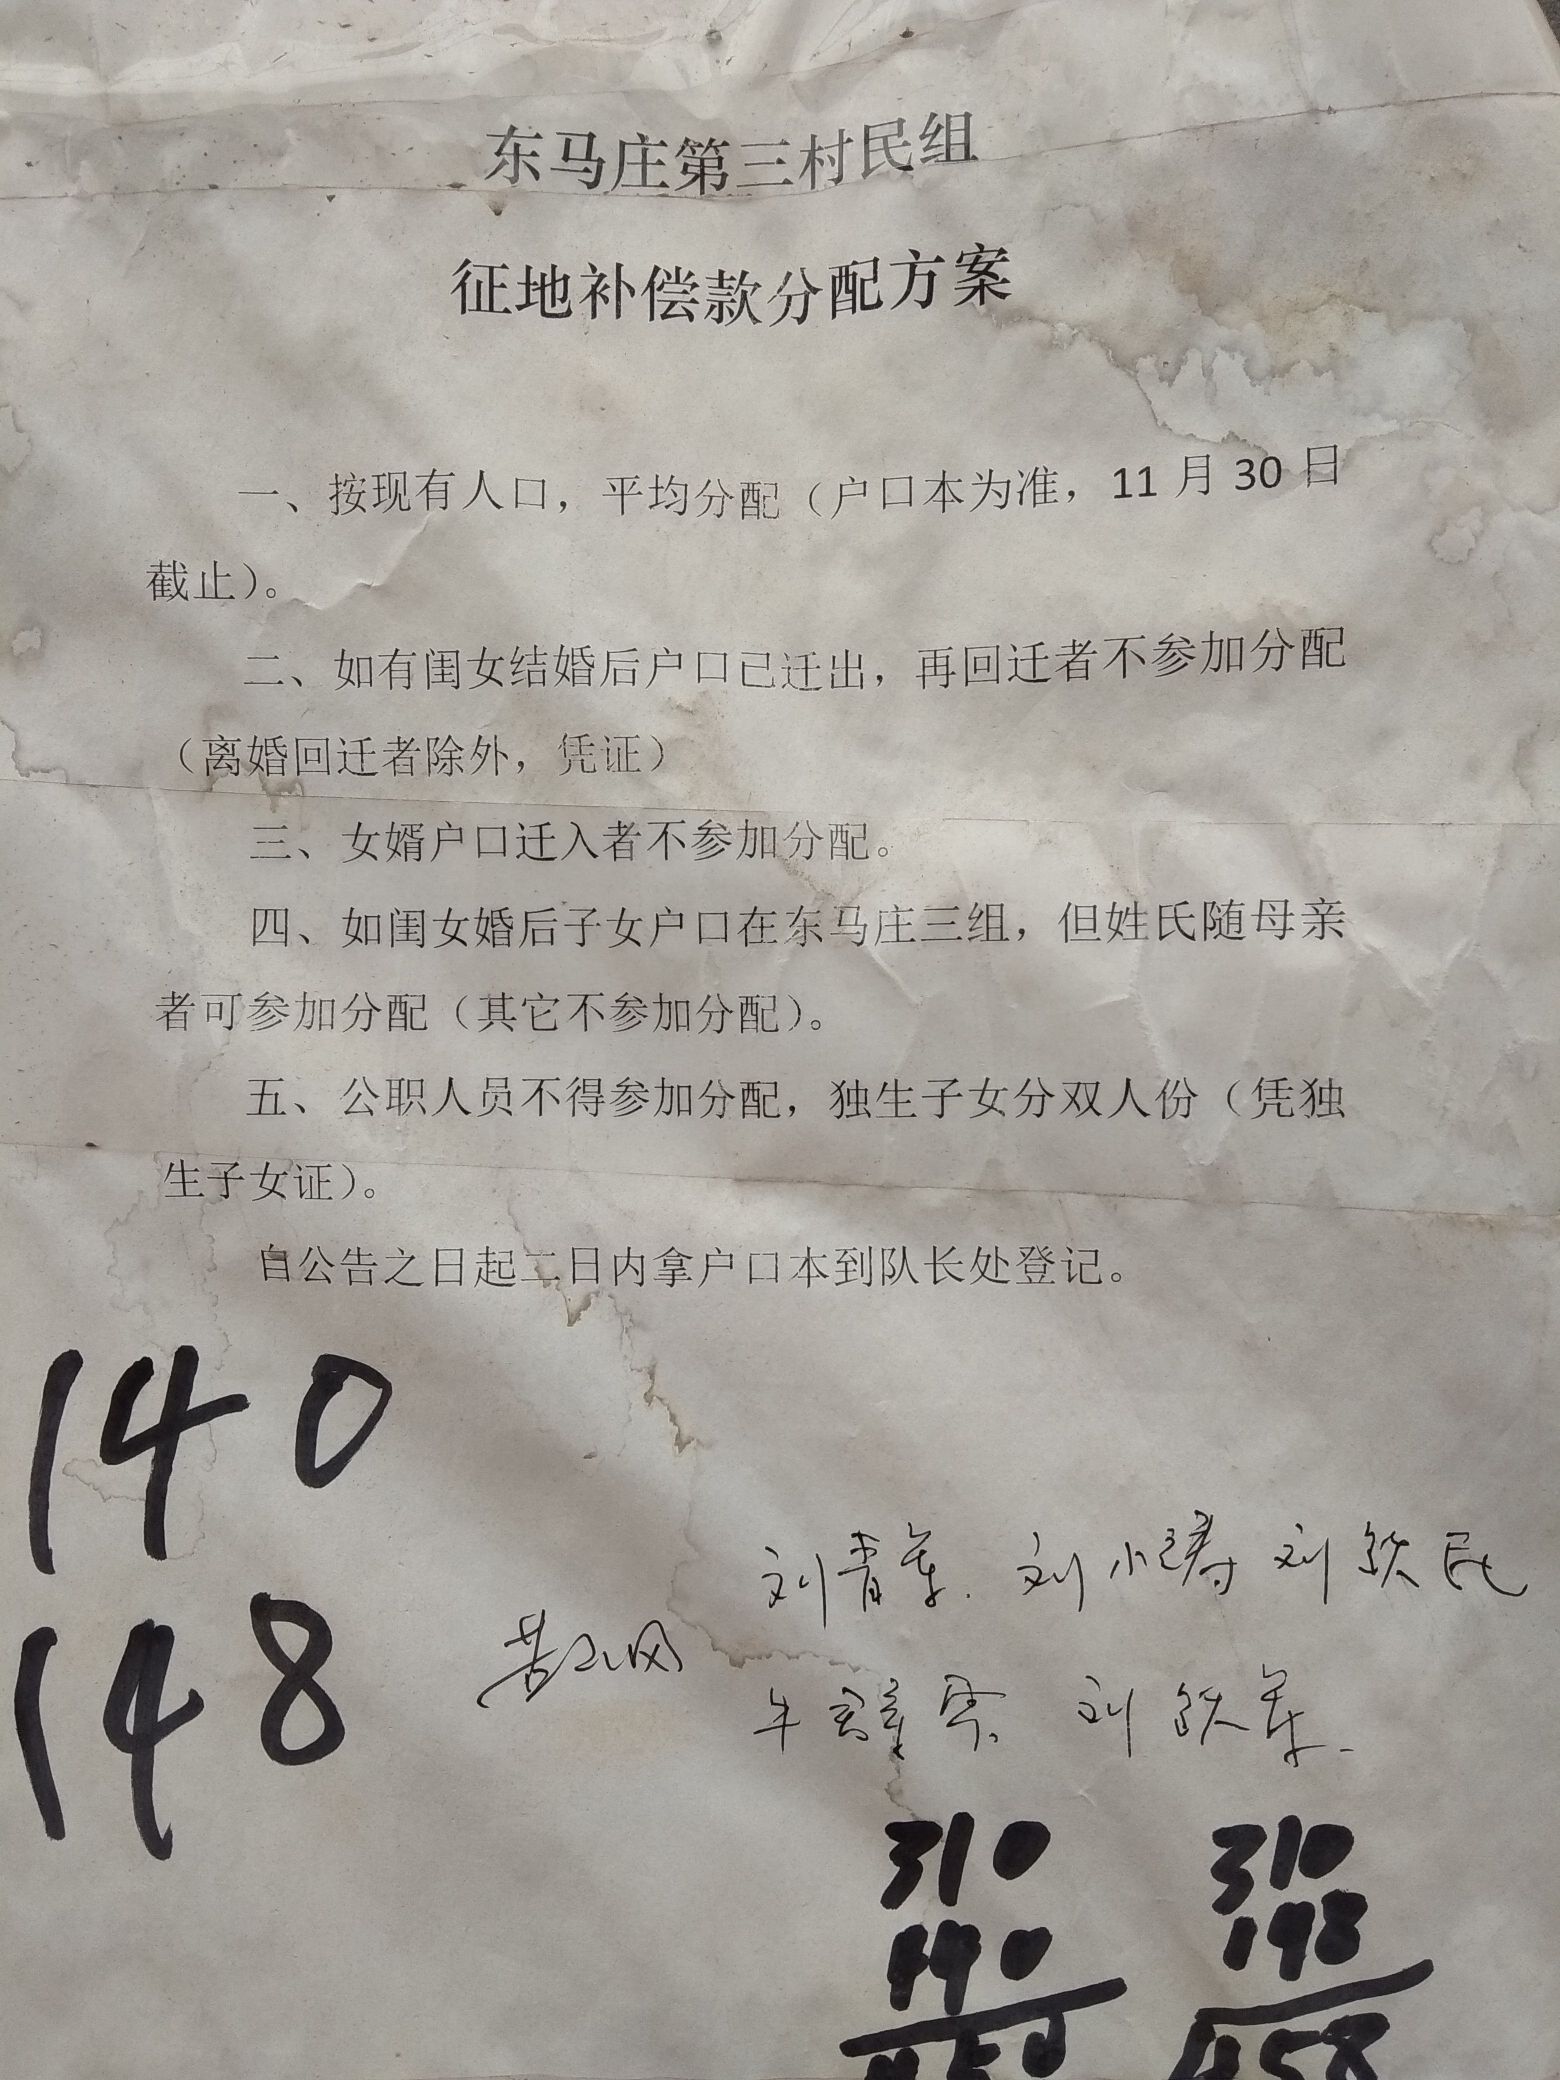 东马庄第三村民组
征地补偿款分配方案
一、按现有人口，平均分配（户口本为准，11月30日
截止）。
二、如有闺女结婚后户口已迁出，再回迁者不参加分配
（离婚回迁者除外，凭证）
三、女婿户口迁入者不参加分配。
四、如闺女婚后子女户口在东马庄三组，但姓氏随母亲
者可参加分配（其它不参加分配）。
五、公职人员不得参加分配，独生子女分双人份（凭独
生子女证）。
自公告之日起二日内拿户口本到队长处登记。
140
148
刘青军. 刘小涛 刘铁民
刘铁军.
310 310
450 458